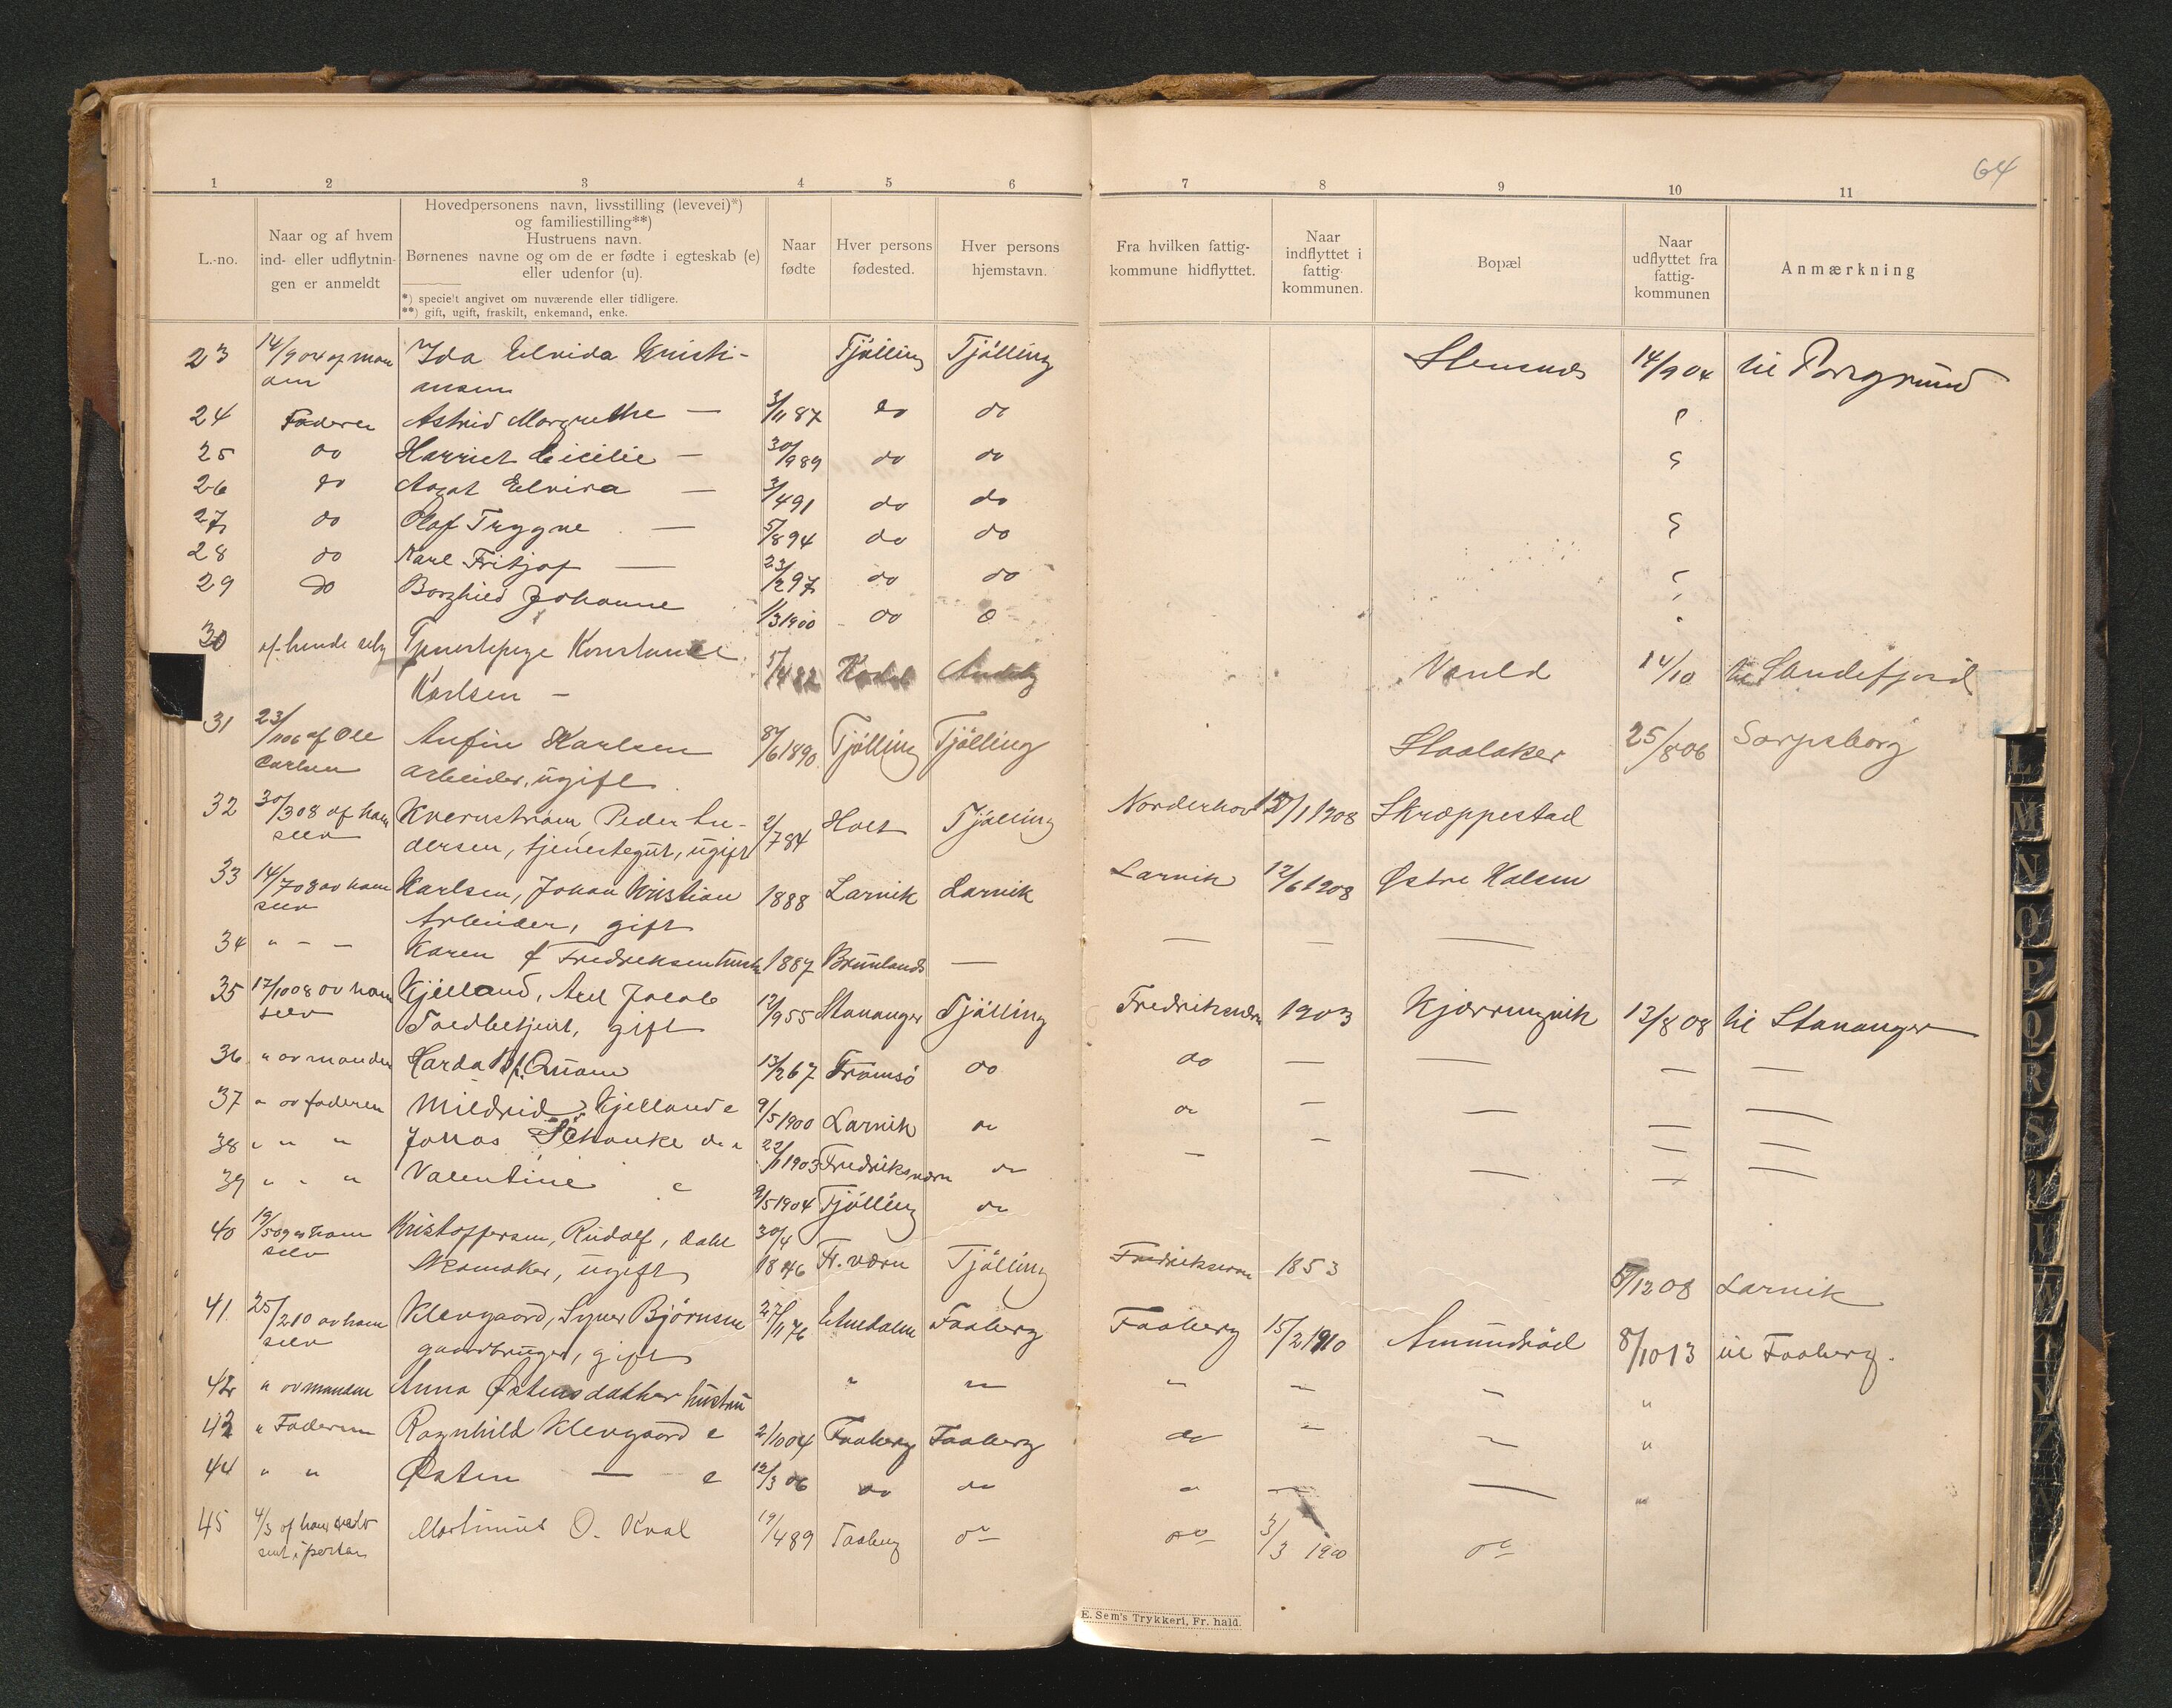 64
1 2 3 4 5 6 7 8 9 10 11
L.-no.
Naar og af hvem
ind- eller udflytnin-
gen er anmeldt
Hovedpersonens navn, livsstilling (levevei)*)
og familiestilling**)
Hustruens navn.
Børnenes navne og om de er fødte i egteskab (e)
eller udenfor (u).
*) specielt angivet om nuværende eller tidligere.
**) gift, ugift, fraskilt, enkemand, enke.
Naar
fødte
Hver persons
fødested.
Hver persons
hjemstavn.
Fra hvilken fattig-
kommune hidflyttet.
Naar
indflyttet i
fattig-
kommunen.
Bopæl
Naar
udflyttet fra
fattig-
kommunen
Anmærkning
23 14/9 04 af man Ida Elvida Kristi- Tjølling Tjølling 14/9 04 til Porsgrund
ansen
24 Faderen Astrid Margrethe — 3/11 87 do do "
25 do Harriet Cicilie — 30/9 89 do do "
26 do Aagot Elvira — 3/4 91 do do
27 do Olaf Trygve — 5/8 94 do do "
28 do Karl Fritjof — 23/2 97 do do "
29 do Borghild Johanne 1/3 1900 do do
30 af hende selv Tjenestepige Konstance 5/4 82 Kodal Andebu 14/10 til Sandefjord
Karlsen —
31 23/11 06 af Ole Anfin Karlsen 8/6 1890 Tjølling Tjølling Haalaker 25/8 06 Sarpsborg
Carlsen arbeider, ugift
32 30/3 08 af ham Kvernstrøm, Peder An- 2/7 84 Holt Tjølling Norderhov 1/1 1908 Skræppestad
selv dersen, tjenestegut, ugift
33 14/7 08 av ham Karlsen, Johan Kristian 1888 Larvik Larvik Larvik 12/6 1908 Østre Halsen
selv Arbeider, gift
34 " — — Karen f Fredriksen hustru 1887 Brunlanes — — — —
35 17/10 08 av ham Kjelland, Axel Jacob 12/9 55 Stavanger Tjølling Fredriksværn 1903 Kjærringvik 13/8 08 til Stavanger
selv Toldbetjent, gift
36 " av manden Harda f. Quam 13/2 67 Tromsø do do — — — —
37 " av faderen Mildrid Kjelland e 9/5 1900 Larvik do do — — — —
38 " " " Jonas Schanke do e 22/1 1903 Fredriksværn do — — — —
39 " " " Valentine e 9/5 1904 Tjølling do — — —
40 19/5 09 av ham Kristoffersen, Rudolf, dahl 30/4 1846 Fr.værn Tjølling Fredriksværn 1853 5/12 08 Larvik
selv Skomaker, ugift
41 25/2 10 av ham Klevgaard, Syver Bjørnsen 27/11 76 Etnedalen Faaberg Faaberg 15/2 1910 Amundrød 8/10 13 til Faaberg.
selv gaardbruger, gift
42 " av manden Anna Østensdatter hustru " " " — — "
43 " Faderen Ragnhild Klevgaard e 2/10 04 Faaberg Faaberg do — — "
44 " " Østen — e 12/3 06 do do " — — "
45 4/3 af ham selv Martinus O. Kval 19/4 89 Faaberg do do 3/3 1900 do